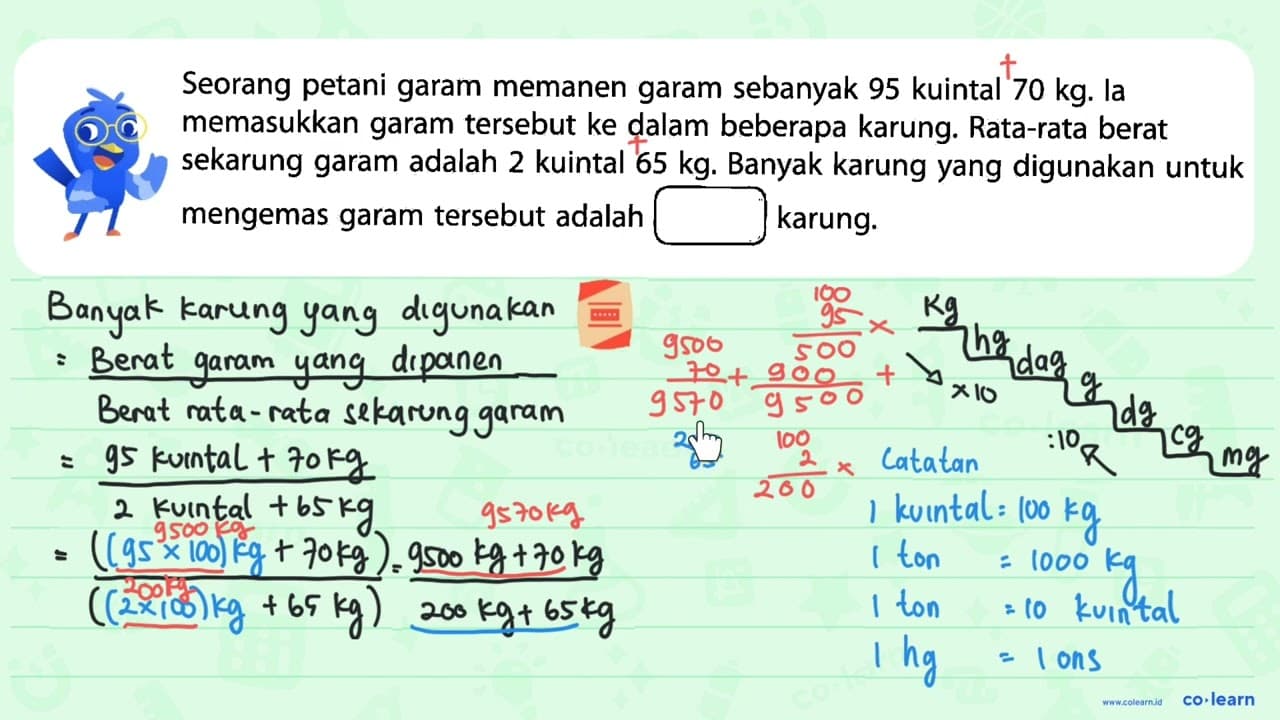 Seorang petani garam memanen garam sebanyak 95 kuintal + 70 kg. Ia
memasukkan garam tersebut ke dalam beberapa karung. Rata-rata berat
sekarung garam adalah 2 kuintal + 65 kg. Banyak karung yang digunakan untuk
mengemas garam tersebut adalah karung.
Banyak karung yang digunakan
= Berat garam yang dipanen
Berat rata-rata sekarung garam
= 95 kuintal + 70 kg
2 kuintal + 65 kg
9500 kg
= ((95 × 100) kg + 70 kg)
200 kg
((2×100) kg + 65 kg)
9570 kg
= 9500 kg + 70 kg
200 kg + 65 kg
9500
70 +
9570
100
95 ×
500
900 +
9500
100
2 ×
200
kg
hg
dag
g
dg
cg
mg
×10
:10
Catatan
1 kuintal = 100 kg
1 ton = 1000 kg
1 ton = 10 kuintal
1 hg = 1 ons
www.colearn.id co·learn